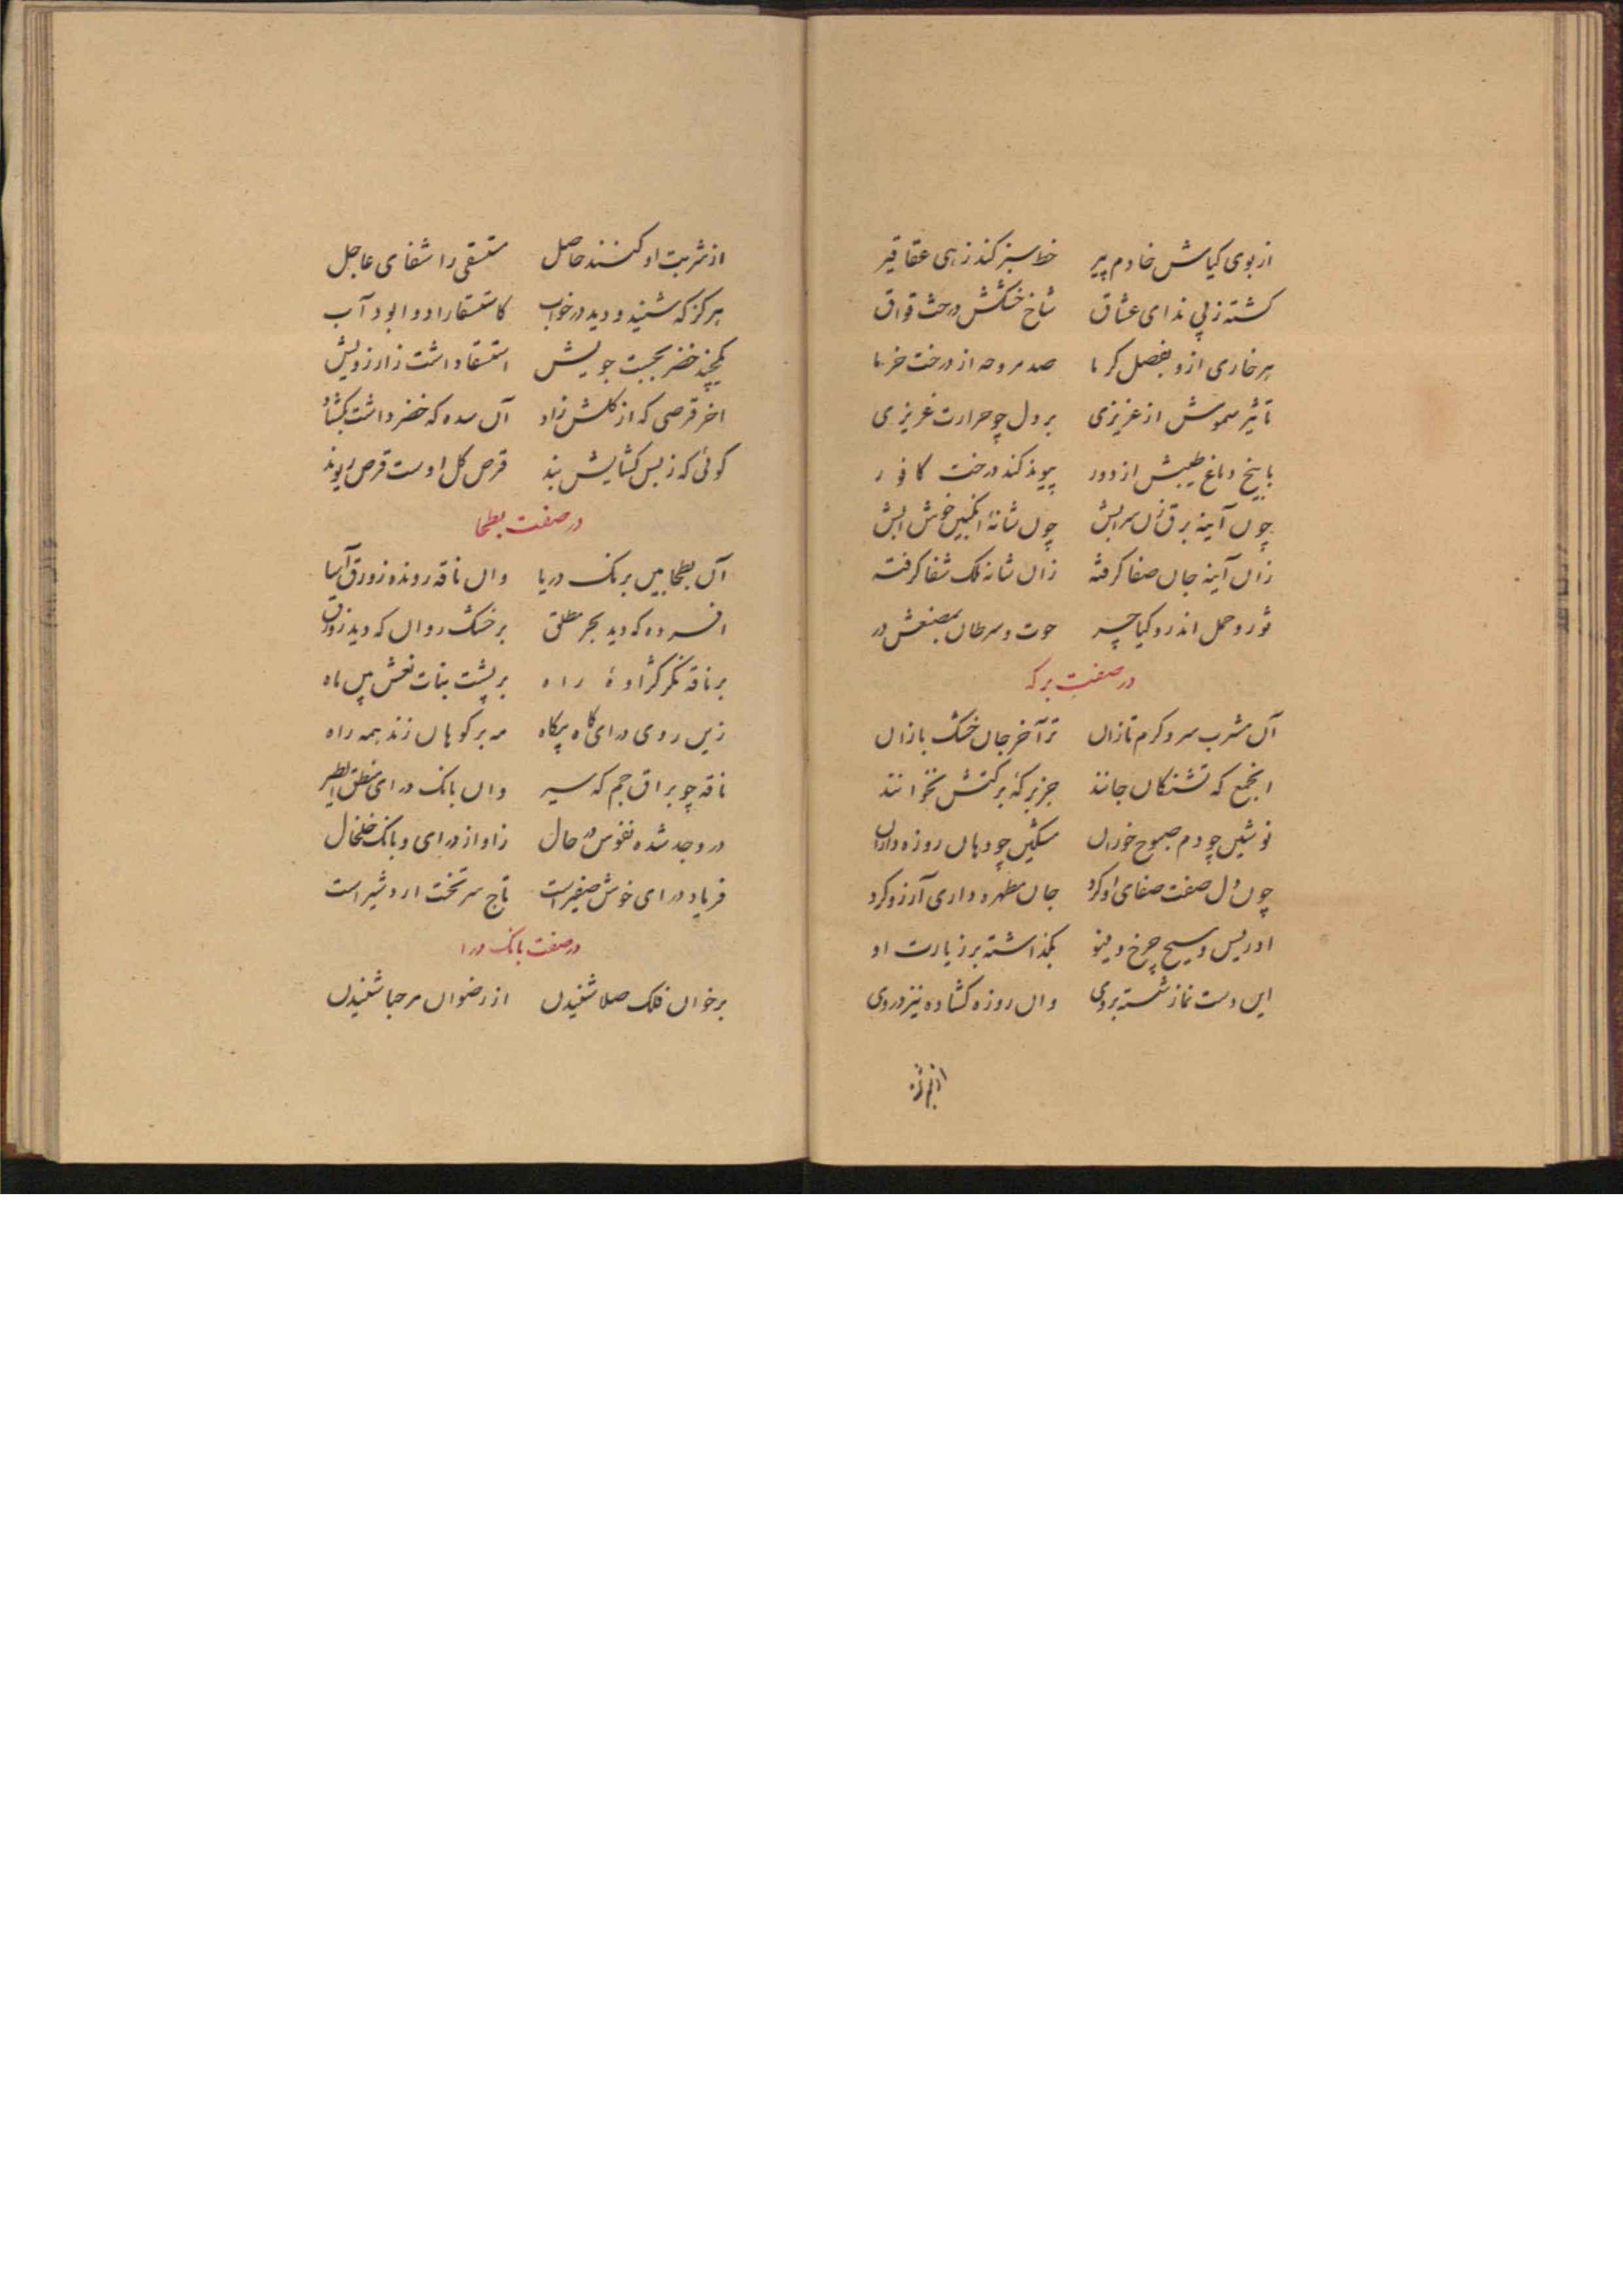 از بوی کیاش خادم پیر خط سبز کند زهی عقاقیر
کشته ز پی ندای عشاق شاخ خشکش درخت وقواق
هر خاری ازو بفصل کرما صد مروحه از درخت خرما
تاثیر سمومش از عزیزی بر دل چو حرارت غریزی
با بیخ دماغ طیبش از دور پیوند کند درخت کافور
چون آینه برق زن سرابش چون شانهٔ انکبین خوش آبش
زان آینه جان صفا کرفته زان شانه فلک شفا کرفته
ثور و حمل اندرو کیا چر حوت و سرطان بمصنعش در
در صفت برکه
آن مشرب سرو کرم تازان تر آخر جان خشک بازان
انجمع که تشنکان جانند جز برکهٔ برکتش نخوانند
نوشین چو دم صبوح خوران مشکین چو دهان روزه داران
چون دل صفت صفای او کرد جان مطهره داری آرزو کرد
ادریس و مسیح چرخ و مینو بکذاشته بر زیارت او
این دست نماز شسته بر وی وان روزه کشاده نیز در وی
از شربت او کنند حاصل مستسقی را شفای عاجل
هرکز که شنید و دید در خواب کاستسقا را دوا بود آب
یکچند خضر بجست جویش استسقا داشت زارزویش
اخر قرصی که از کلش زاد آن سده که خضر داشت بکشاد
کوئی که ز بس کشایش بند قرص کل اوست قرص ریوند
در صفت بطحا
آن بطحا بین برنک دریا وان ناقه رونده زورق آسا
افسرده که دید بحر مطلق بر خشک روان که دید زورق
بر ناقه نکر کژاوهٔ راه بر پشت بنات نعش بین ماه
زین روی درای کاه بیکاه مه بر کوهان زند همه راه
ناقه چو براق جم که سیر وان بانک درای منطق الطیر
در وجد شده نفوس در حال زاواز درای و بانک خلخال
فریاد درای خوش صفیر است تاج سر تخت اردشیر است
در صفت بانک درا
بر خوان فلک صلا شنیدن از رضوان مرحبا شنیدن